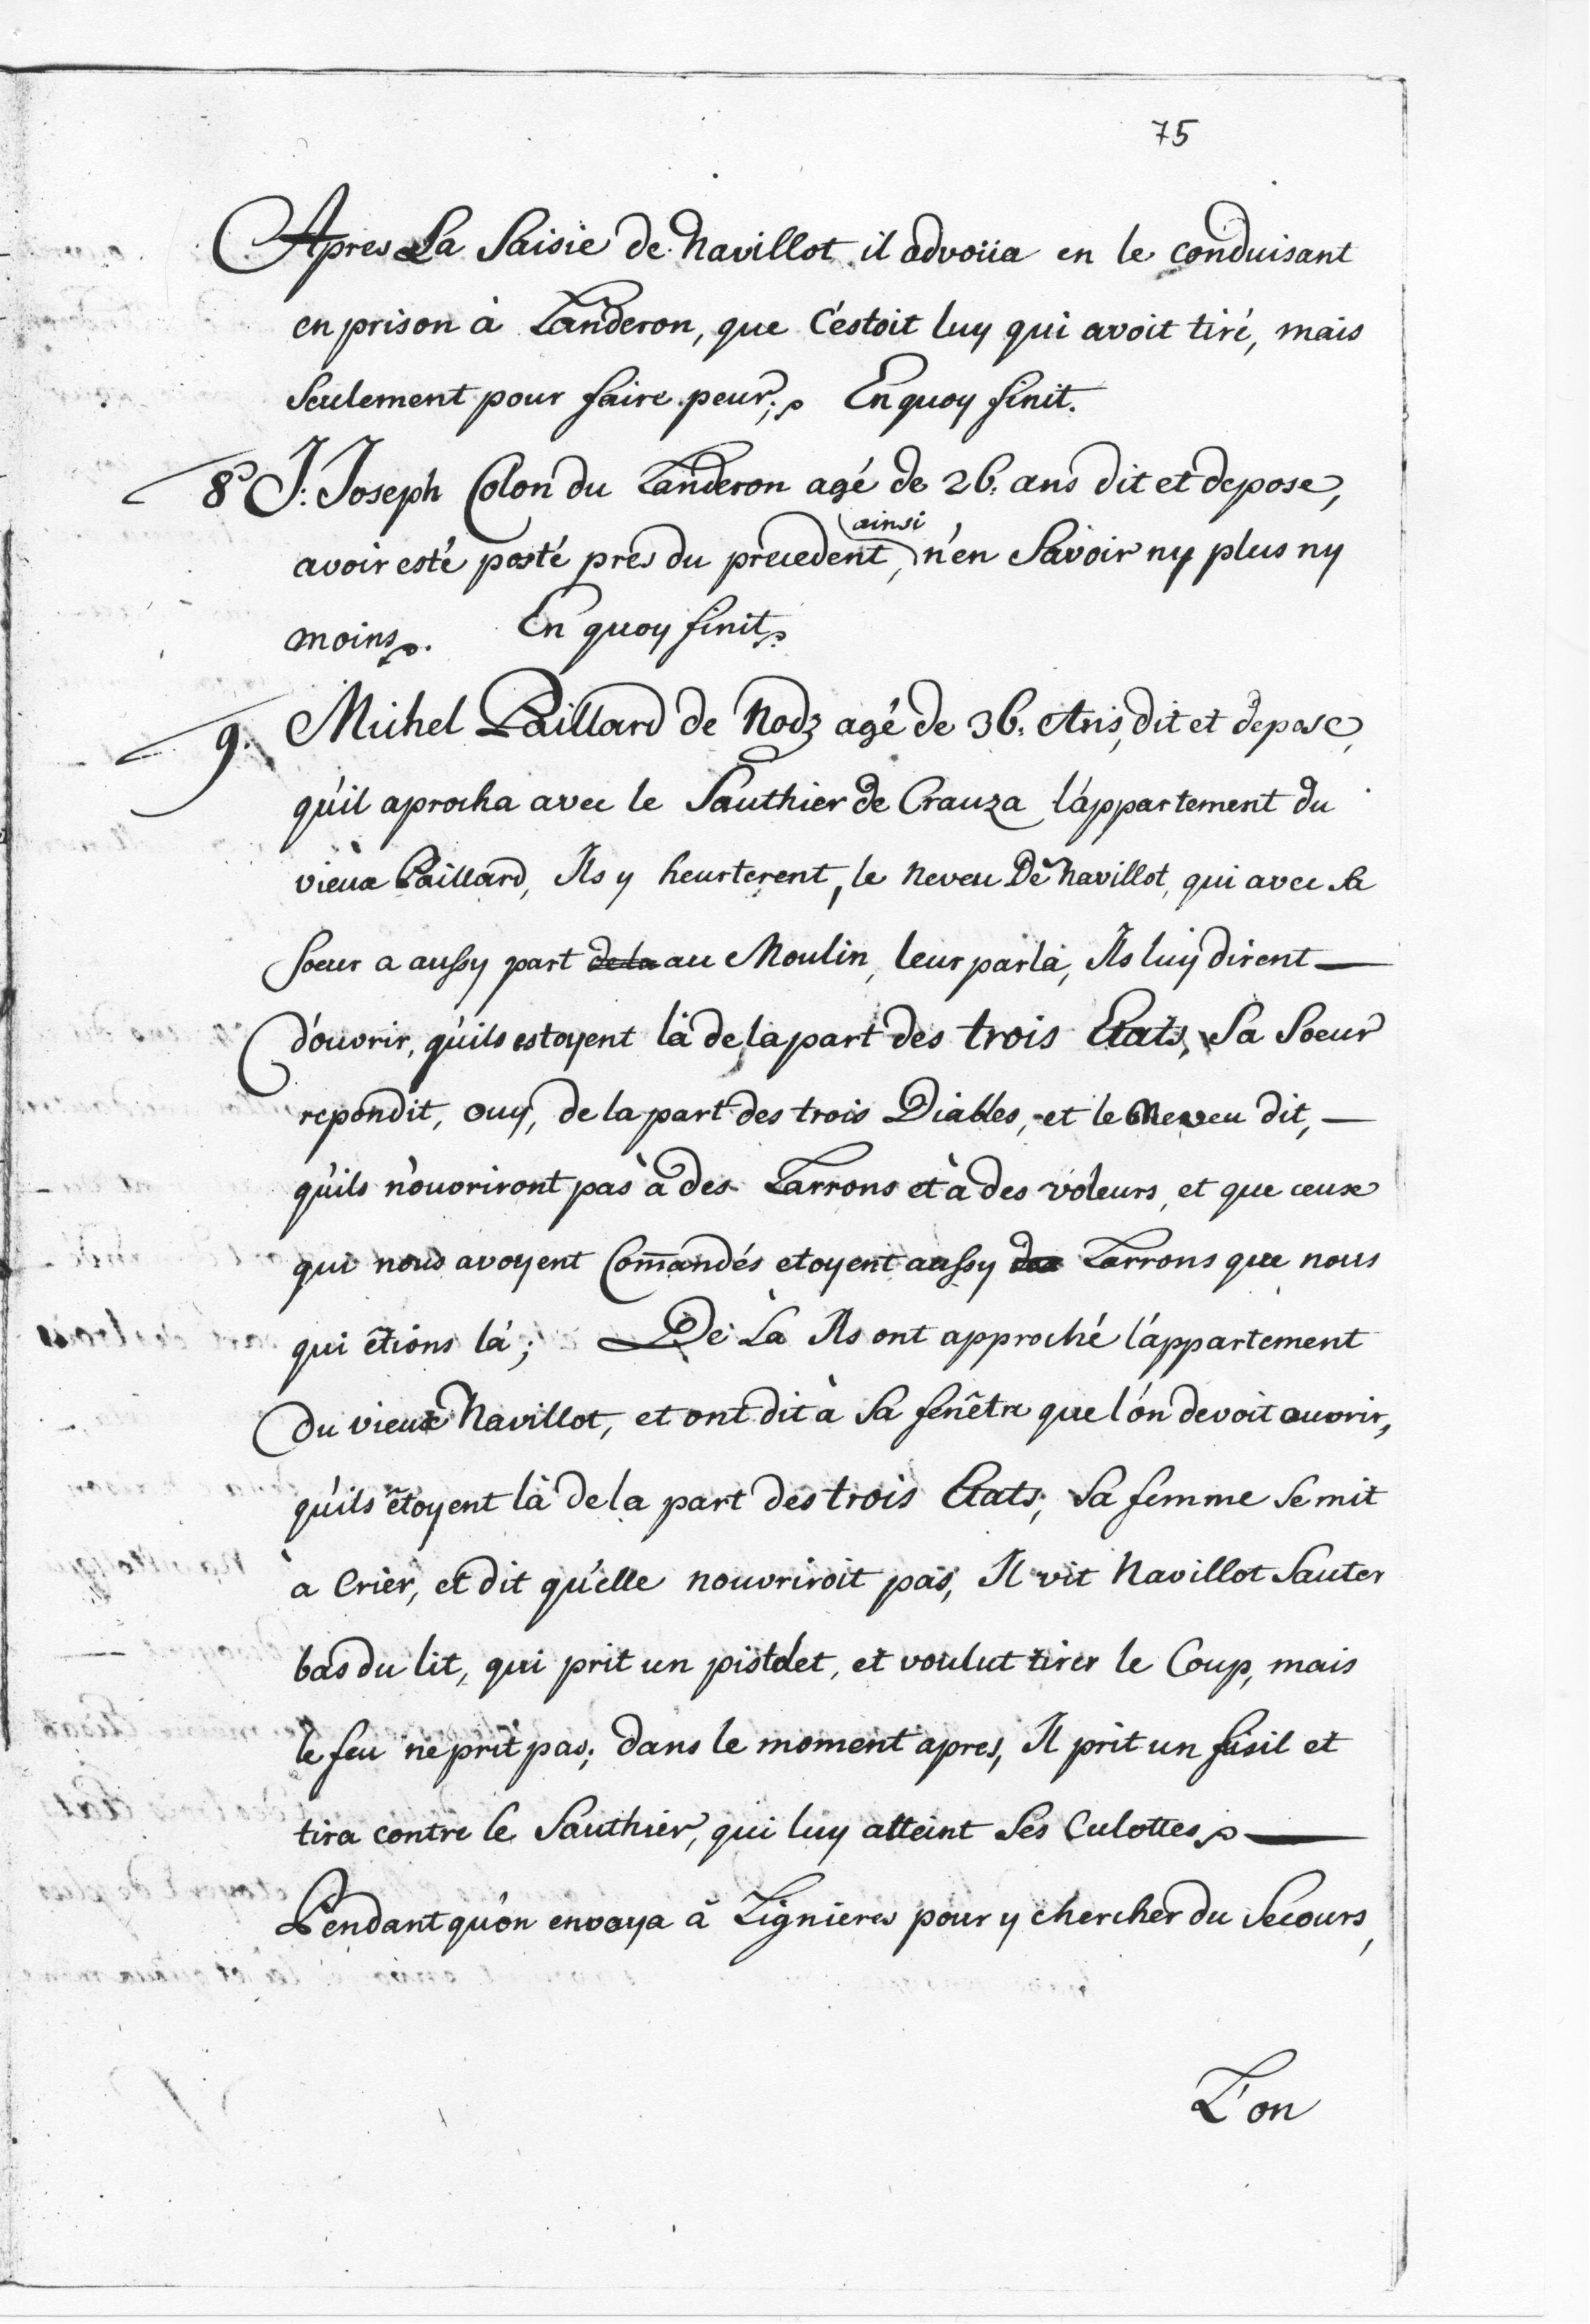 75
Apres La Saisie de Navillot il advoüa en le conduisant
en prison à Landeron, que c'estoit luy qui avoit tiré, mais
seulement pour faire peur; En quoy finit.
8° J: Joseph Colon du Landeron agé de 26. ans dit et depose,
ainsi
avoir esté posté pres du precedent, n'en Savoir ny plus ny
moins. En quoy finit.
9. Michel Paillard de Nodz agé de 36. Ans, dit et depose,
qu'il aprocha avec le Sauthier de Crauza l'appartement du
vieux Paillard, Ils y heurterent, le neveu De Navillot, qui avec sa
soeur a aussy part de la au Moulin, leur parla, Ils luy dirent —
d'ouvrir, qu'ils estoyent là de la part des trois Etats, Sa Soeur
repondit, ouy, de la part des trois Diables, et le Neveu dit, —
qu'ils n'ouvriront pas à des Larrons et à des voleurs, et que ceux
qui nous avoyent Com̄andés etoyent aussy Larrons que nous
qui êtions là; De Là Ils ont approché l'appartement
Du vieux Navillot, et ont dit à Sa fenêtre que l'on devoit ouvrir,
qu'ils êtoyent là de la part des trois Etats; Sa femme se mit
à Crier, et dit qu'elle nouvriroit pas, Il vit Navillot Sauter
bas du lit, qui prit un pistolet, et voulut tirer le Coup, mais
le feu ne prit pas; dans le moment apres, Il prit un fusil et
tira contre le Sauthier, qui luy atteint Ses Culottes —
Pendant qu'on envoya à Lignieres pour y chercher du Secours,
L'on